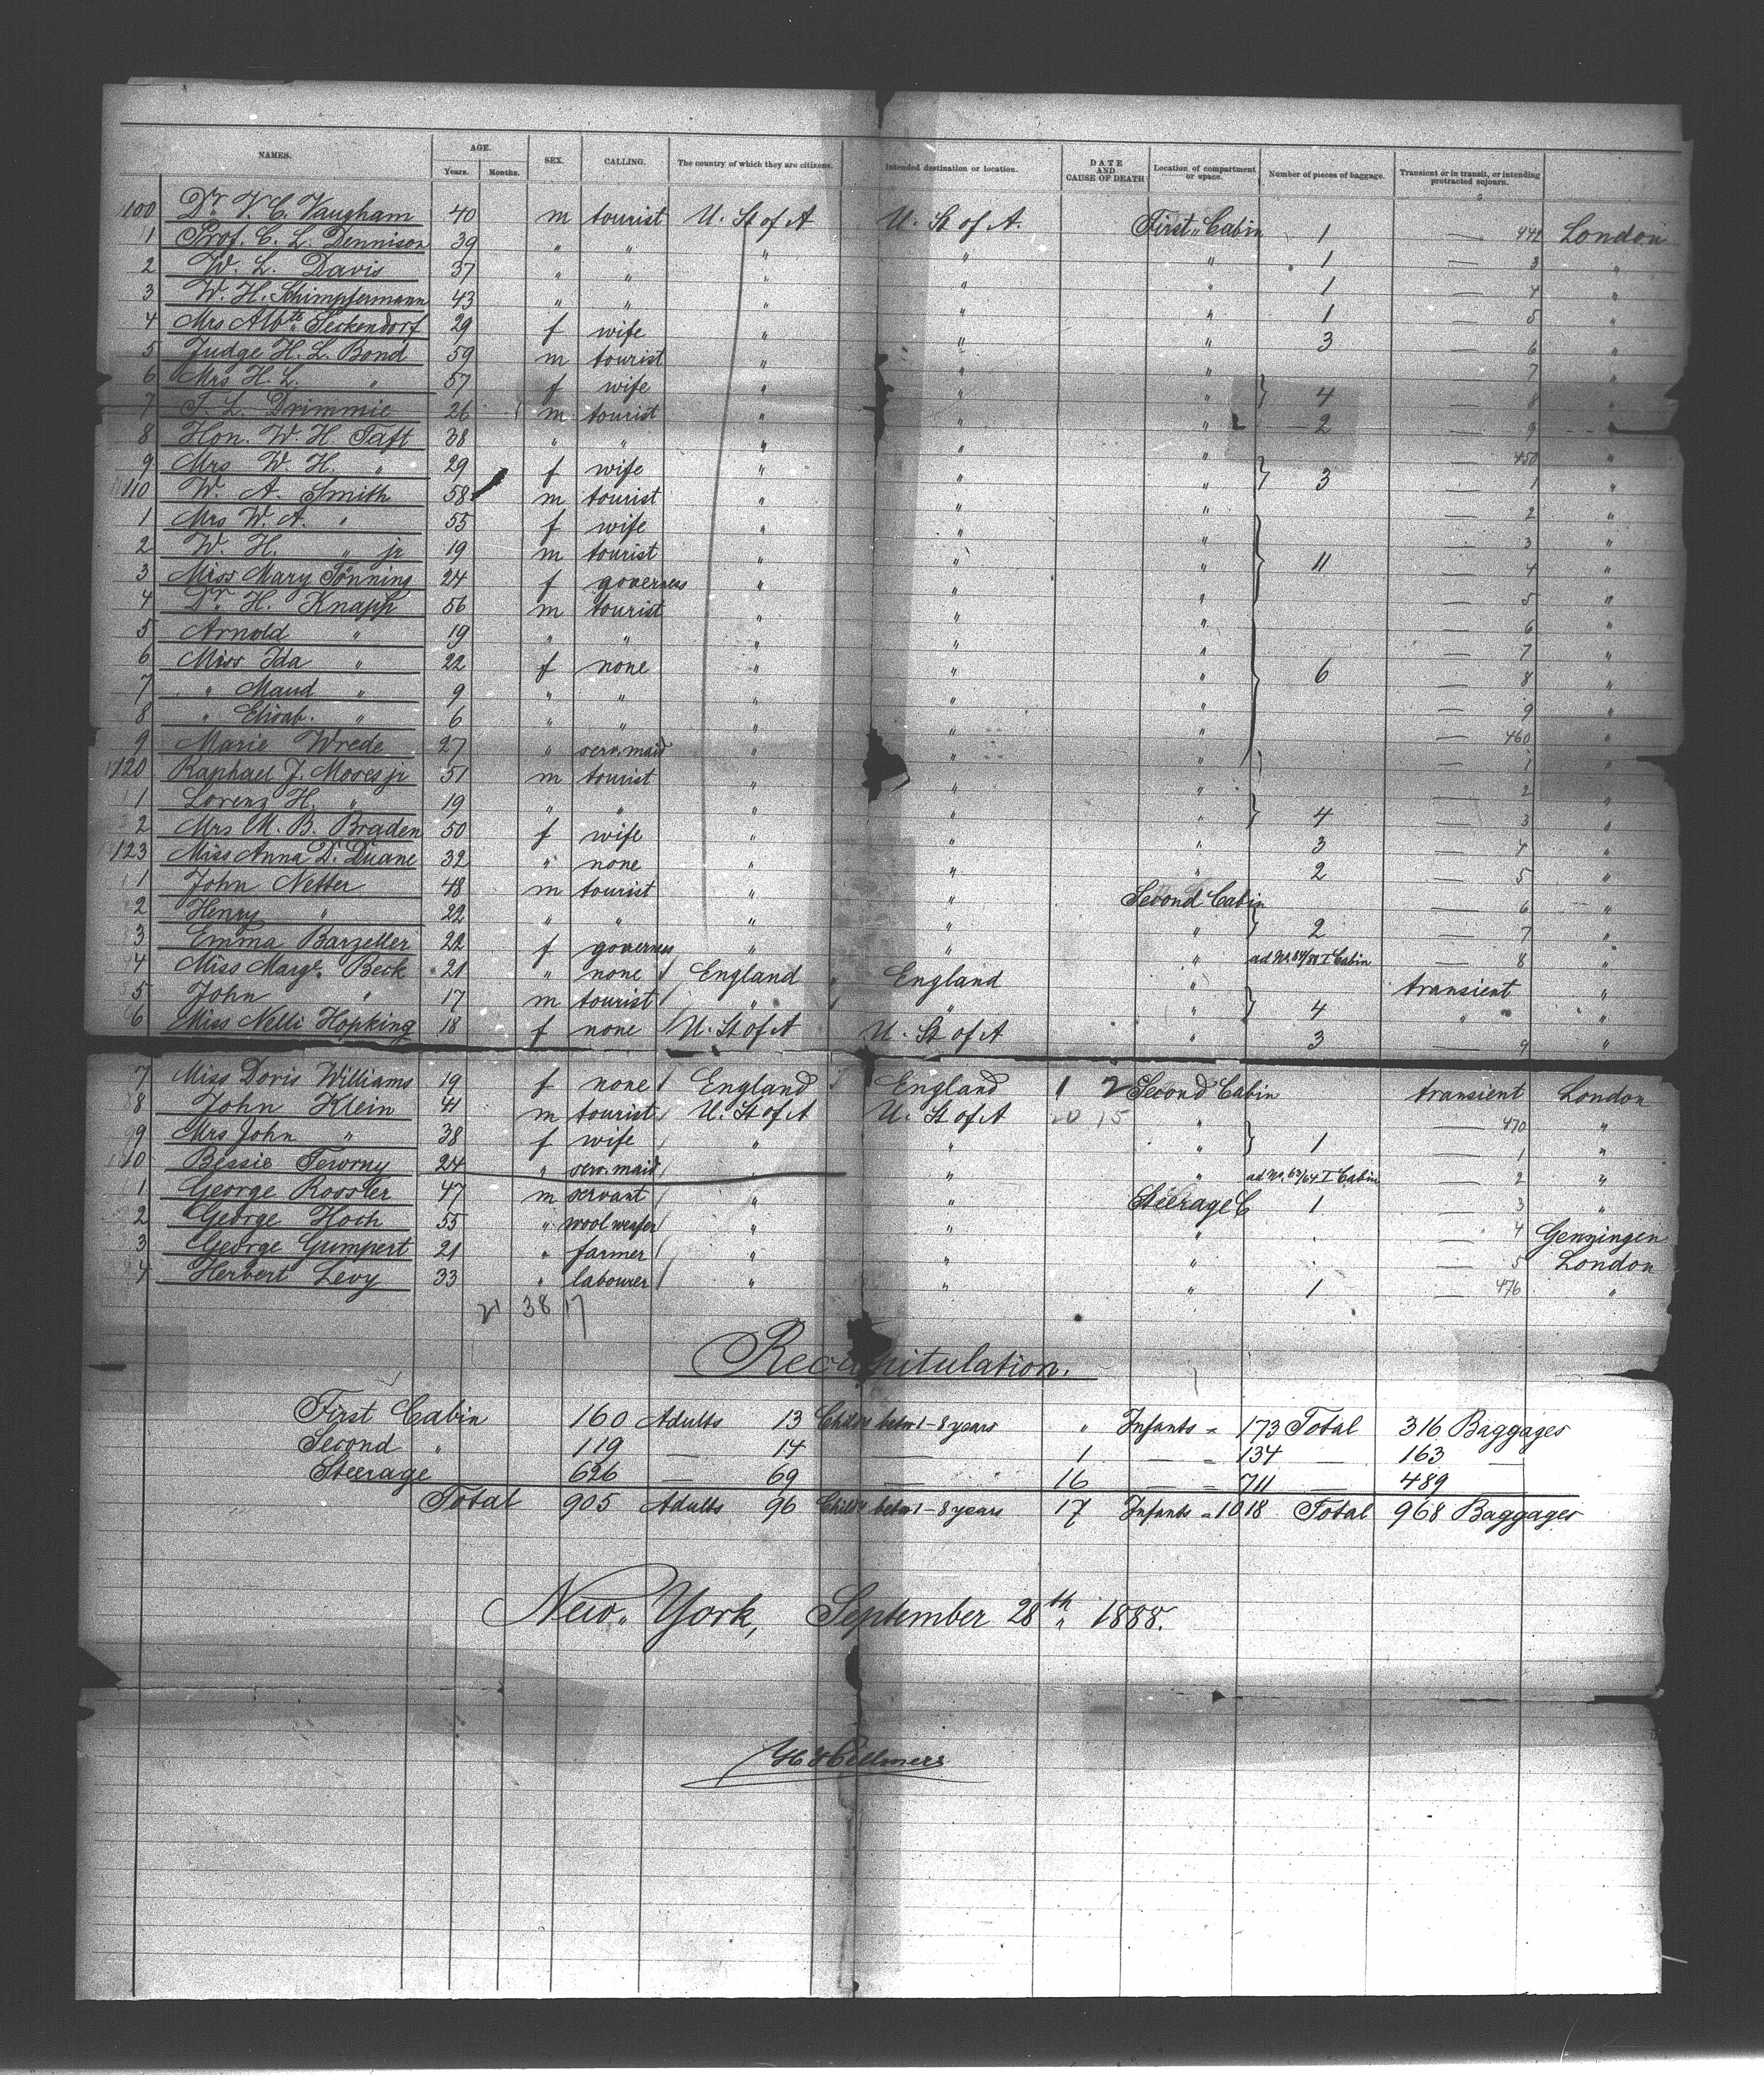 NAMES. AGE. Years. Months. SEX. CALLING. The country of which they are citizens. Intended destination or location. DATE AND CAUSE OF DEATH Location of compartment or space. Number of pieces of baggage. Transient or in transit, or intending protracted sojourn.
100 Dr. V. C. Vaugham 40 m tourist U. St of A U. St of A. First Cabin 1 — 442 London
1 Prof. C. L. Dennison 39 " " " " " 1 — 3 "
2 W. L. Davis 37 " " " " " 1 — 4 "
3 W. H. Schimpfermann 43 " " " " " 1 — 5 "
4 Mrs Alb. Seckendorf 29 f wife " " " 3 — 6 "
5 Judge H. L. Bond 59 m tourist " " " — 7 "
6 Mrs H. L. " 57 f wife " " " 4 — 8 "
7 T. L. Drimmie 26 m tourist " " " 2 — 9 "
8 Hon. W. H. Taft 38 " " " " " — 450 "
9 Mrs W. H. " 29 f wife " " " 3 — 1 "
110 W. A. Smith 58 m tourist " " " — 2 "
1 Mrs W. A. " 55 f wife " " " — 3 "
2 W. H. " jr 19 m tourist " " " 11 — 4 "
3 Miss Mary Tönning 24 f governess " " " — 5 "
4 Dr. H. Knapp 56 m tourist " " " — 6 "
5 Arnold " 19 " " " " " — 7 "
6 Miss Ida " 22 f none " " " 6 — 8 "
7 " Maud " 9 " " " " " — 9 "
8 " Elisab. " 6 " " " " " — 460 "
9 Marie Wrede 27 " serv. maid " " " — 1 "
120 Raphael J. Moses jr 51 m tourist " " " — 2 "
1 Lorenz H. " 19 " " " " " 4 — 3 "
2 Mrs M. B. Braden 50 f wife " " " 3 — 4 "
123 Miss Anna D. Duane 32 " none " " " 2 — 5 "
1 John Netter 48 m tourist " " Second Cabin — 6 "
2 Henry " 22 " " " " " 2 — 7 "
3 Emma Barzeller 22 f governess " " " ad No. 87/88 I Cabin — 8 "
4 Miss Marge. Beck 21 " none England England " transient "
5 John " 17 m tourist " " " 4 " "
6 Miss Nelli Hopking 18 f none U. St of A U. St of A " 3 — 9 "
7 Miss Doris Williams 19 f none England England 1 2 Second Cabin transient London
8 John Klein 41 m tourist U. St of A U. St of A 20 15 " — 470 "
9 Mrs John " 38 f wife " " " 1 — 1 "
10 Bessie Tevorny 24 " serv. maid " " " ad No. 63/64 I Cabin — 2 "
1 George Rooster 47 m servant " " Steerage C 1 — 3 "
2 George Hoch 55 " wool weafer " " " — 4 Genningen
3 George Gumpert 21 " farmer " " " — 5 London
4 Herbert Levy 33 " labourer " " " 1 — 476 "
21 38 17
Recapitulation.
First Cabin 160 Adults 13 Childn betw 1-8 years " Infants = 173 Total 316 Baggages
Second " 119 — 14 — 1 — = 134 — 163 —
Steerage 626 — 69 — 16 — = 711 — 489
Total 905 Adults 96 Childn betw 1-8 years 17 Infants = 1018 Total 968 Baggages
New York, September 28th 1888.
H Hellmers